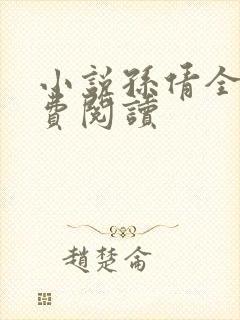 小說孫倩全
費閱讀
趙楚侖